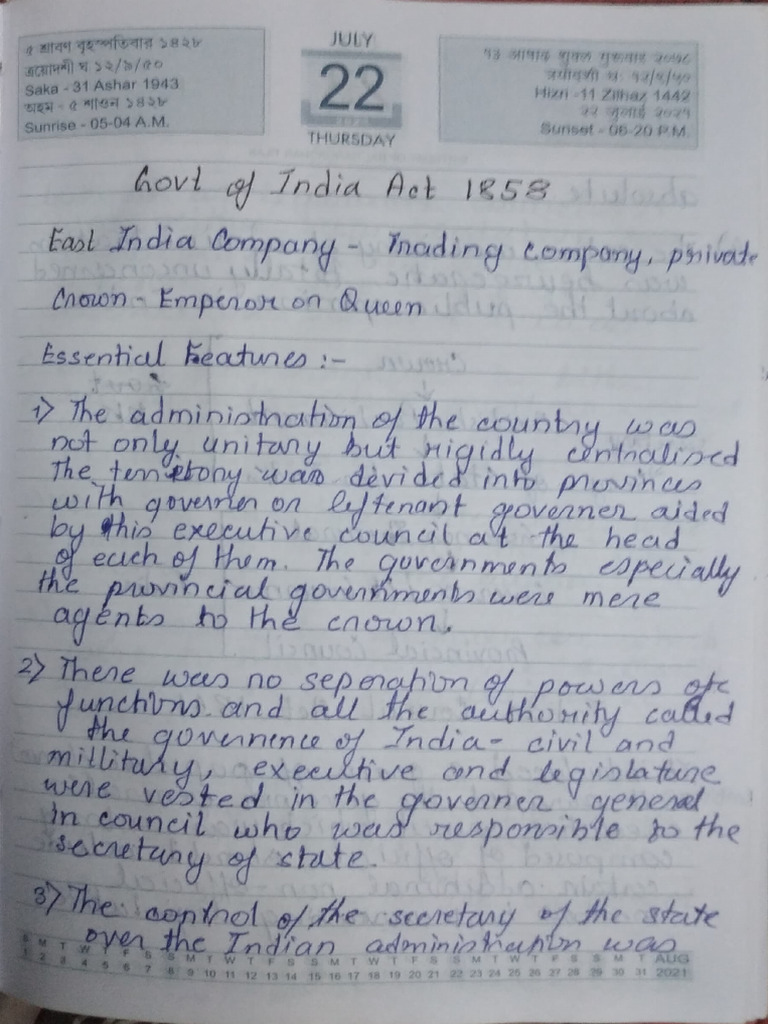 JULY
22
THURSDAY
৫ শ্রাবণ বৃহস্পতিবার ১৪২৮
ত্রয়োদশী ঘ ১২/৯/৫০
Saka - 31 Ashar 1943
অহম - ৫ শাওন ১৪২৮
Sunrise - 05-04 A.M.
Hizri -11 Zilhaz 1442
२२ जुलाई २०२१
Sunset - 06-20 P.M.
Govt of India Act 1858
East India Company - Trading company, private
Crown - Emperor or Queen
Essential Features :-
1) The administration of the country was
not only unitary but rigidly centralised
The territory was devided into provinces
with governer or leftenant governer aided
by this executive council at the head
of each of them. The governments especially
the provincial governments were mere
agents to the crown.
2) There was no seperation of powers of
functions and all the authority called
the governence of India - civil and
millitary, executive and legislature
were vested in the governer general
in council who was responsible to the
secretary of state.
3) The control of the secretary of the state
over the Indian administration was
S M T W T F S S M T W T F S S M T W T F S S M T W T F S S M T AUG
1 2 3 4 5 6 7 8 9 10 11 12 13 14 15 16 17 18 19 20 21 22 23 24 25 26 27 28 29 30 31 2021